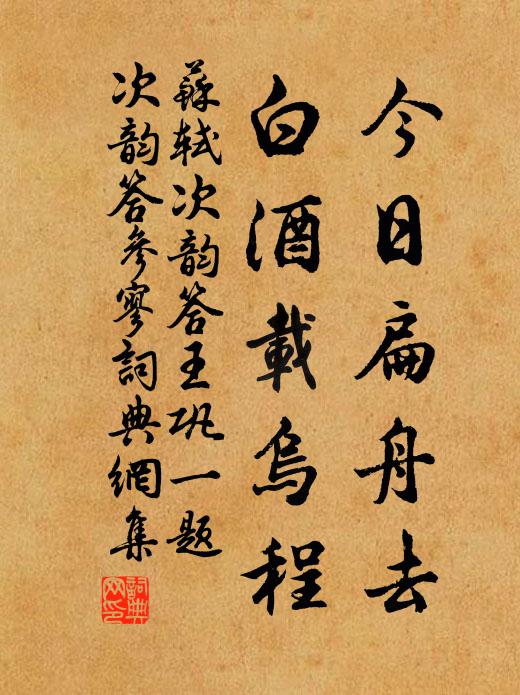 今日扁舟去
白酒載烏程
蘇軾次韵答王巩一题
次韵答參寥詞典網集
詞典网印